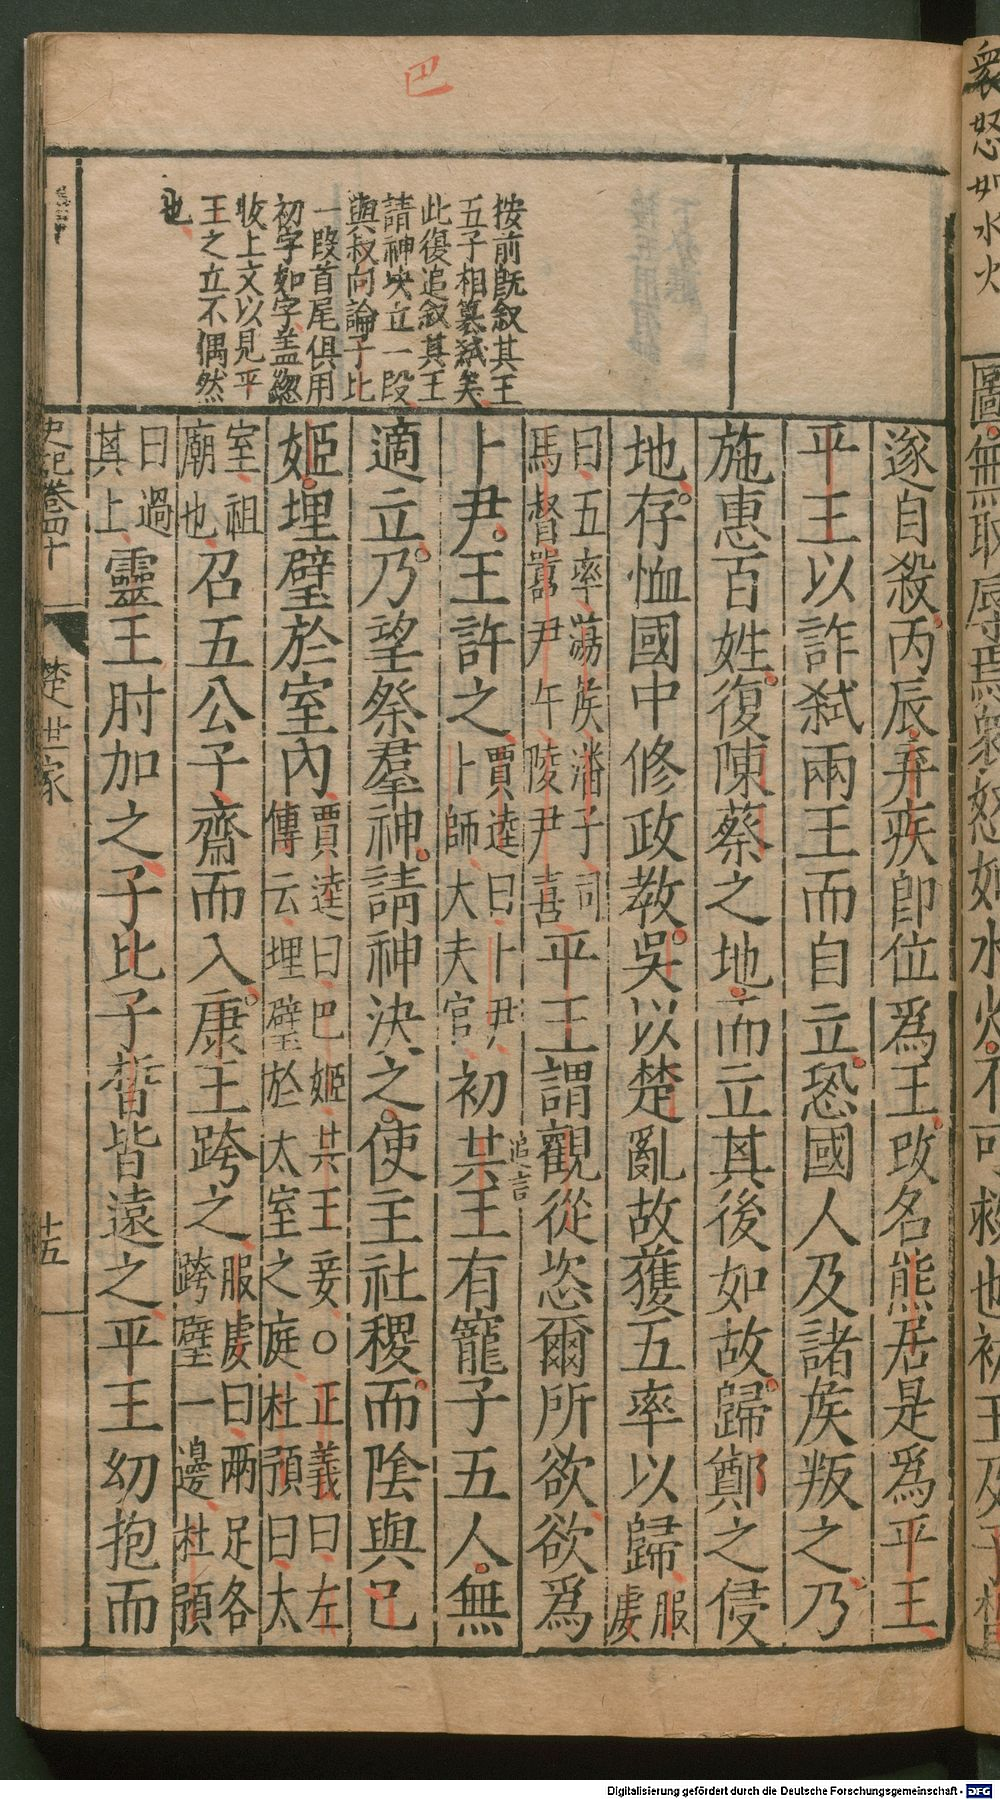 巴
按前旣敘其王
五子相簒弑矣
此復追敘其王
請神决立一段
與叔向論子比
一段首尾俱用
初字如字盖總
收上文以見平
王之立不偶然
也
遂自殺丙辰弃疾卽位爲王改名熊居是爲平王
平王以詐弑兩王而自立恐國人及諸矦叛之乃
施惠百姓復陳蔡之地而立其後如故歸鄭之侵
地存恤國中修政教吳以楚亂故獲五率以歸服虔
曰五率蕩矦潘子司馬督嚻尹午陵尹喜平王謂觀從恣爾所欲欲爲
卜尹王許之賈逵曰卜尹卜師大夫官初共王有寵子五人無
追言
適立乃望祭羣神請神決之使主社稷而陰與巴
姬埋璧於室內賈逵曰巴姬共王妾○正義曰左傳云埋璧於太室之庭杜預曰太
室祖廟也召五公子齋而入康王跨之服虔曰兩足各跨璧一邊杜預
曰過其上靈王肘加之子比子晳皆遠之平王幼抱而
史記卷四十
楚世家
十五
衆怒如水火
圖無取辱焉衆怒如水火不可救也初王及子晳
Digitalisierung gefördert durch die Deutsche Forschungsgemeinschaft - DFG